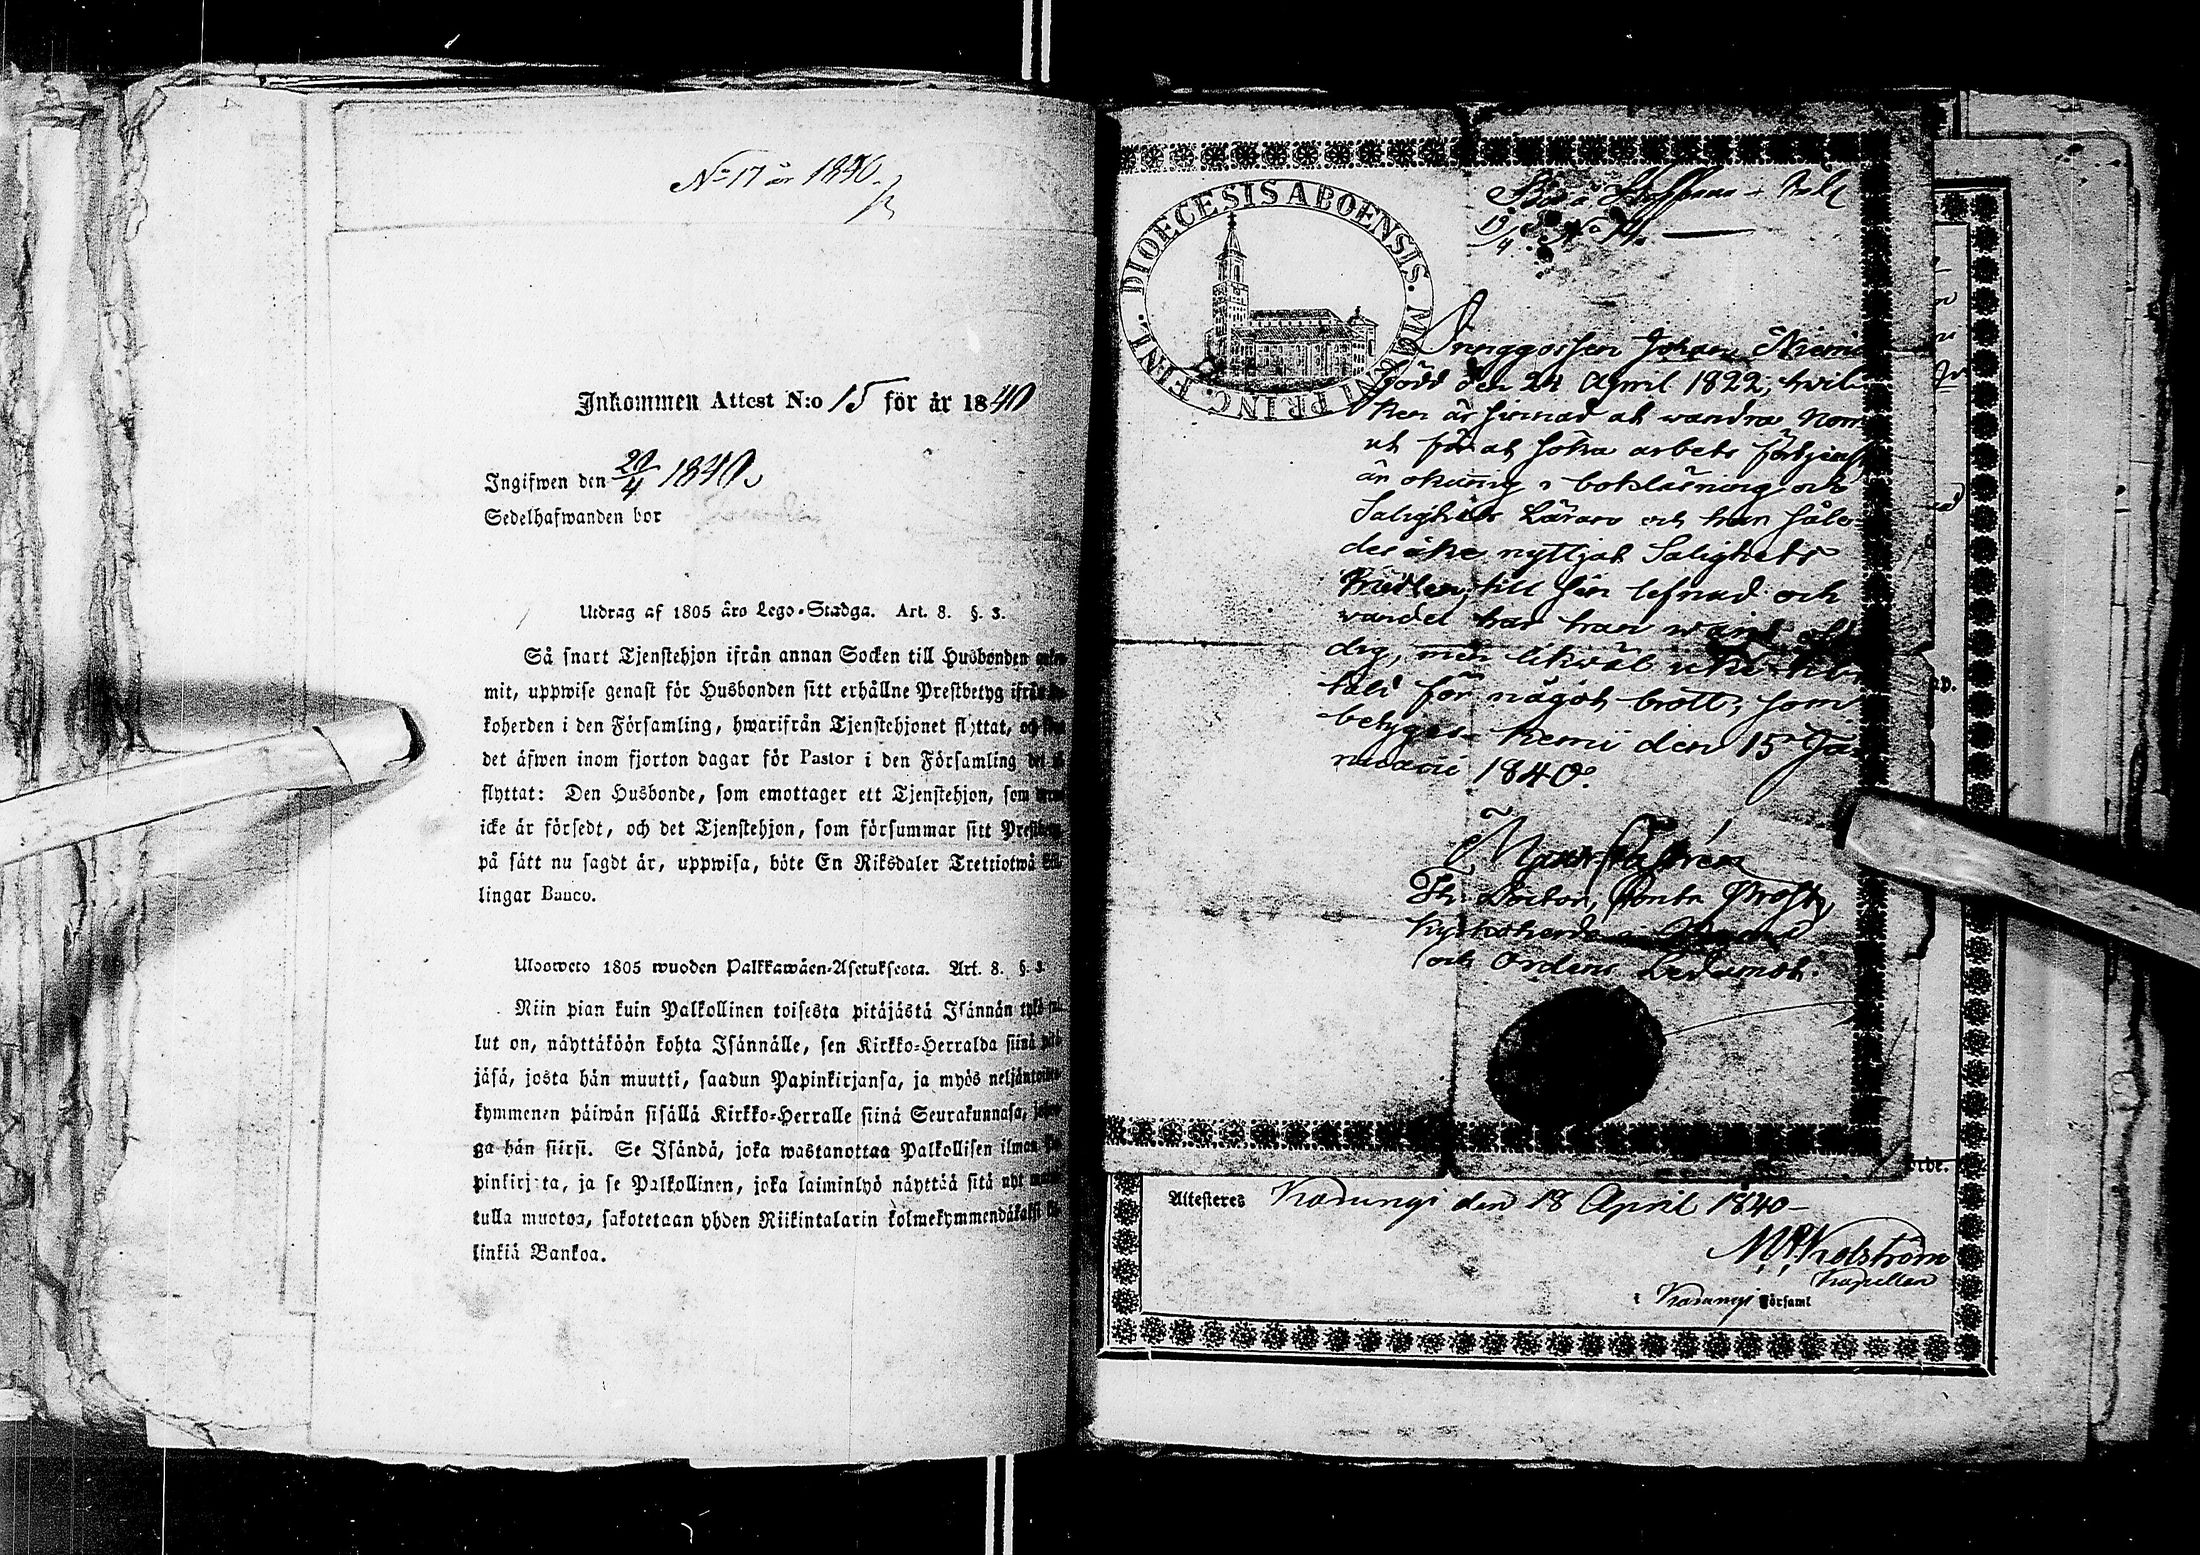 No 17 år 1840.
Inkommen Attest N:o 15 för år 1840
Ingifwen den 20/4 1840.
Sedelhafwanden bor
Utdrag af 1805 års Lego-Stadga. Art. 8. §. 3.
Så snart Tjenstehjon ifrån annan Socken till Husbonden
mit, uppwise genast för Husbonden sitt erhållne Prestbetyg ifrån
koherden i den Församling, hwarifrån Tjenstehjonet flyttat, och
det äfwen inom fjorton dagar för Pastor i den Församling det
flyttat: Den Husbonde, som emottager ett Tjenstehjon, som
icke är försedt, och det Tjenstehjon, som försummar sitt Prestbetyg
på sätt nu sagdt är, uppwisa, böte En Riksdaler Trettiotwå
lingar Banco.
Ulosweto 1805 wuoden Palkkawäen-Asetuksesta. Art. 8. §. 3.
Niin pian kuin Palkollinen toisesta pitäjästä Isännän tykö
lut on, näyttäköön kohta Isännälle, sen Kirkko-Herralda siinä
jäsä, josta hän muutti, saadun Papinkirjansa, ja myös neljäntoista
kymmenen päiwän sisällä Kirkko-Herralle siinä Seurakunnasa,
ga hän siirsi. Se Isändä, joka wastanottaa Palkollisen ilman
pinkirjata, ja se Palkollinen, joka laiminlyö näyttää sitä nyt
tulla muotoa, sakotetaan yhden Riikintalarin kolmekymmendäkaksi
linkiä Bankoa.
DIOECESIS ABOENSIS. MAGNI PRINC. FINL.
19/4
Drenggossen Johan Niemi
född den 24 April 1822, hvil
ken är sinnad at wandra Norr
ut för at söka arbets förtjenst
är okunnig i bokläsning och
Salighets Läran och han såle
des icke nyttjat Salighets
Medlen, till sin lefnad och
vandel har han warit
dig, men likväl icke
tald för något brott, som
betygas. Kemi den 15 Ja
nuarii 1840.
Matth. Castrén
Th. Doctor, Contr. Prost,
Kyrkoherde i Kemi
och Ordens Ledamot.
Attesteres Karungi den 18 April 1840
M. Kolström
Kapellan
i Karungi Församl